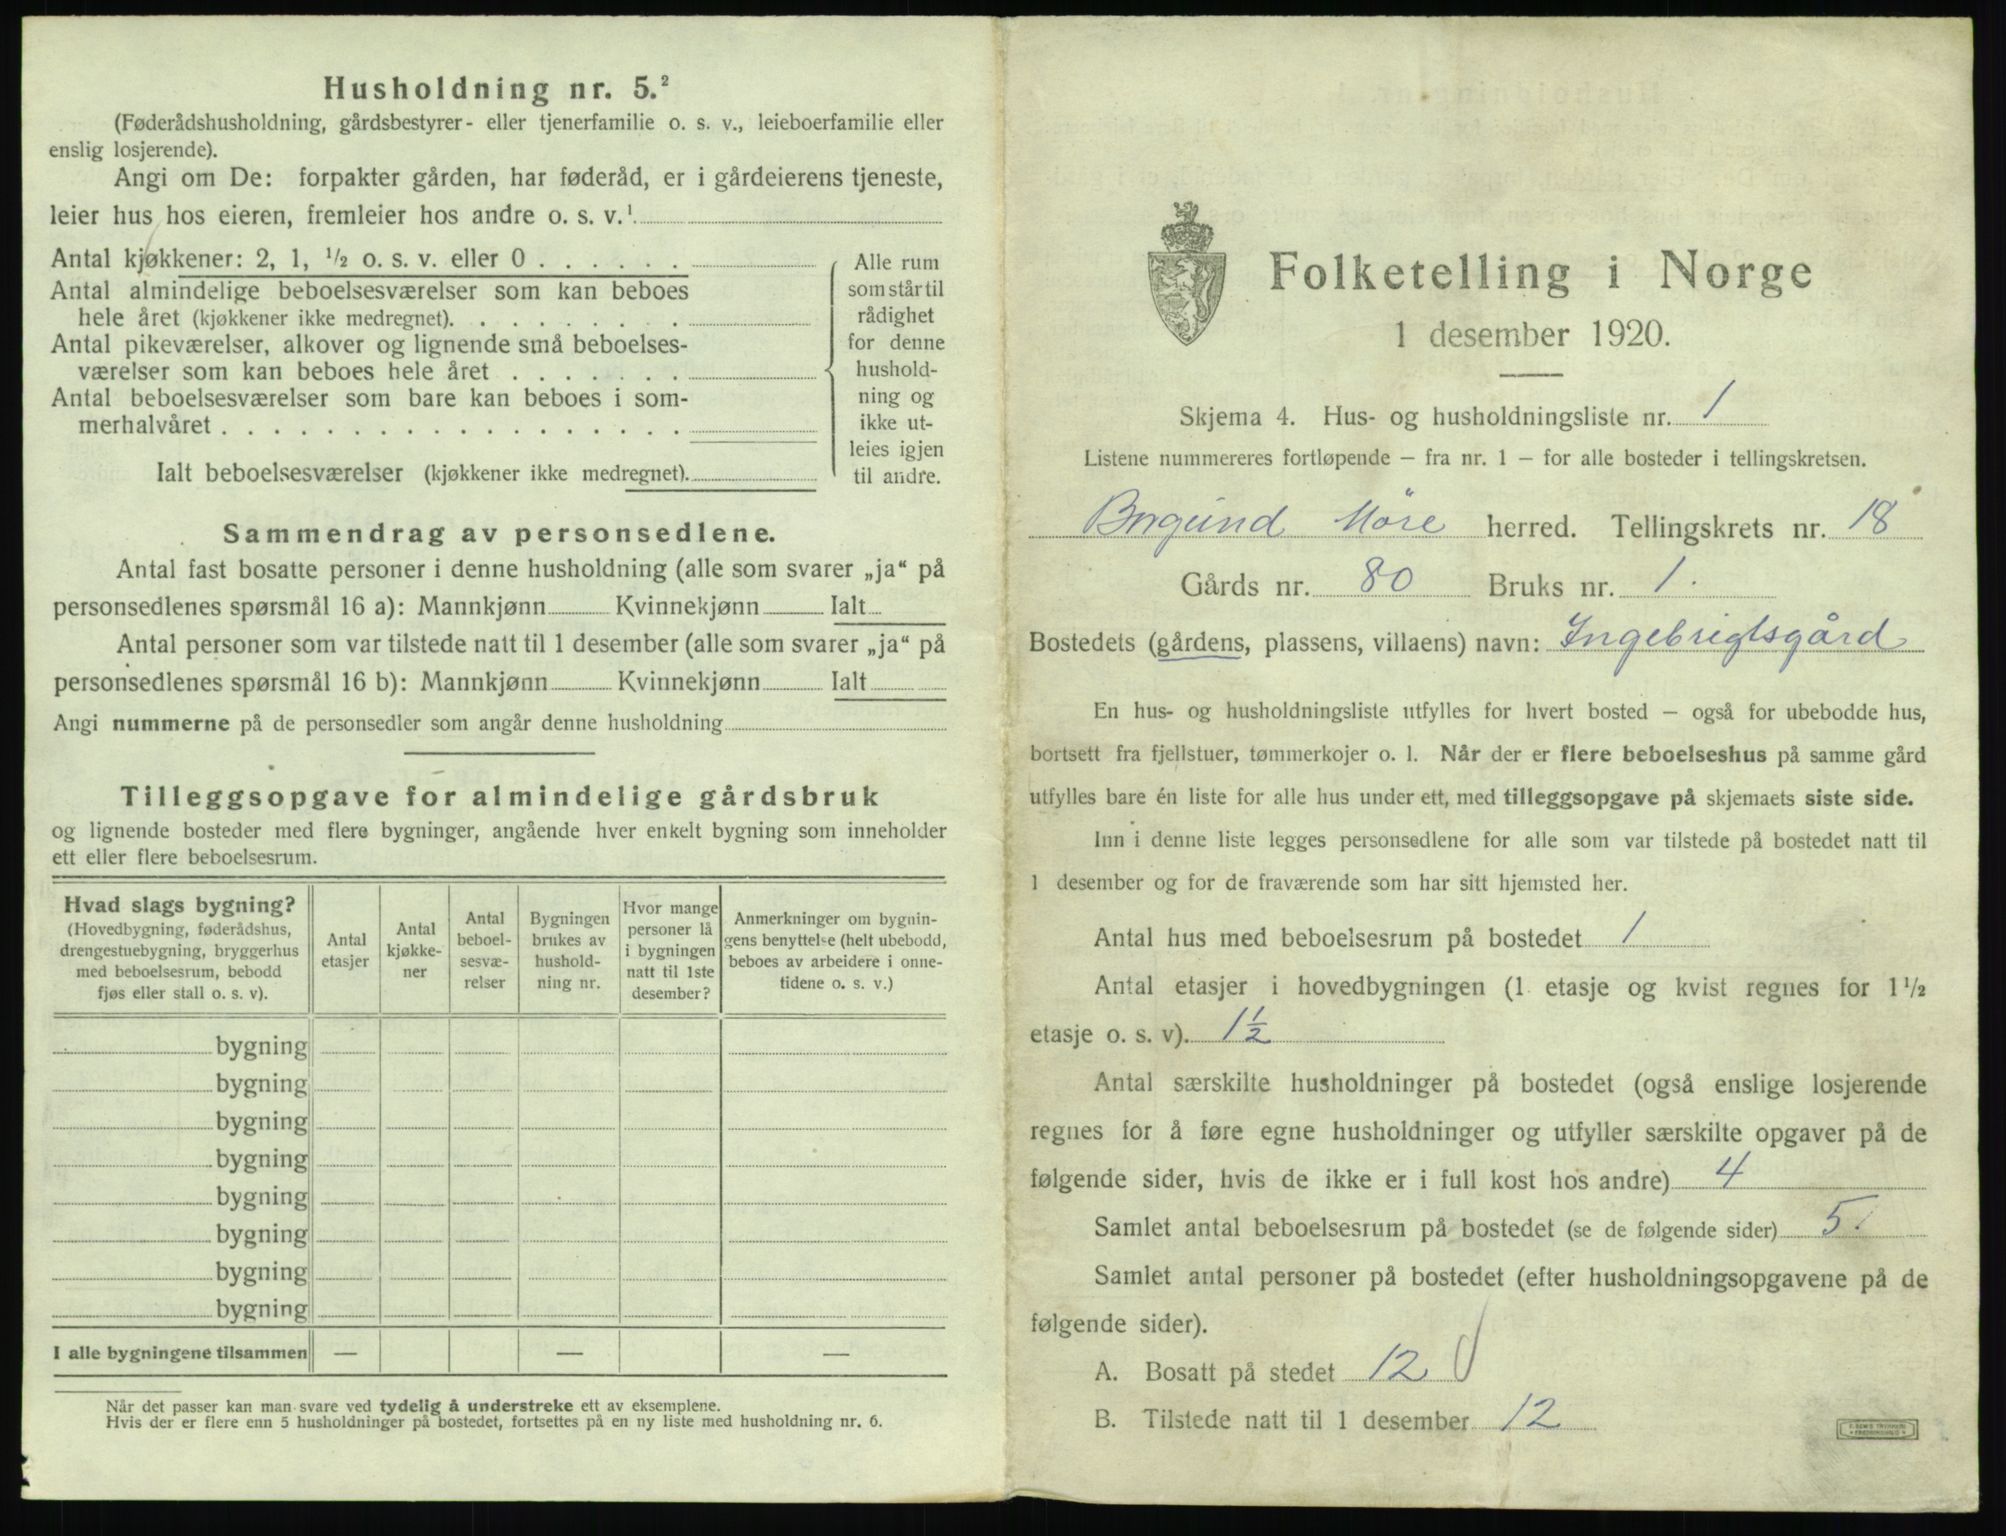 Husholdning nr. 5.²
(Føderådshusholdning, gårdsbestyrer- eller tjenerfamilie o. s. v., leieboerfamilie eller
enslig losjerende).
Angi om De: forpakter gården, har føderåd, er i gårdeierens tjeneste,
leier hus hos eieren, fremleier hos andre o. s. v.¹
Antal kjøkkener: 2, 1, ½ o. s. v. eller 0 . . . . . .
Antal almindelige beboelsesværelser som kan beboes
hele året (kjøkkener ikke medregnet). . . . . . . . .
Antal pikeværelser, alkover og lignende små beboelses-
værelser som kan beboes hele året . . . . . . .
Antal beboelsesværelser som bare kan beboes i som-
merhalvåret . . . . . . . . . . . . . . . . . .
Ialt beboelsesværelser (kjøkkener ikke medregnet).
Alle rum
som står til
rådighet
for denne
hushold-
ning og
ikke ut-
leies igjen
til andre.
Sammendrag av personsedlene.
Antal fast bosatte personer i denne husholdning (alle som svarer „ja“ på
personsedlenes spørsmål 16 a): Mannkjønn Kvinnekjønn Ialt
Antal personer som var tilstede natt til 1 desember (alle som svarer „ja“ på
personsedlenes spørsmål 16 b): Mannkjønn Kvinnekjønn Ialt
Angi nummerne på de personsedler som angår denne husholdning
Tilleggsopgave for almindelige gårdsbruk
og lignende bosteder med flere bygninger, angående hver enkelt bygning som inneholder
ett eller flere beboelsesrum.
Hvad slags bygning?
(Hovedbygning, føderådshus,
drengestuebygning, bryggerhus
med beboelsesrum, bebodd
fjøs eller stall o. s. v).
Antal
etasjer
Antal
kjøkke-
ner
Antal
beboel-
sesvæ-
relser
Bygningen
brukes av
hushold-
ning nr.
Hvor mange
personer lå
i bygningen
natt til 1ste
desember?
Anmerkninger om bygnin-
gens benyttelse (helt ubebodd,
beboes av arbeidere i onne-
tidene o. s. v.)
bygning
bygning
bygning
bygning
bygning
bygning
bygning
bygning
I alle bygningene tilsammen — — —
Når det passer kan man svare ved tydelig å understreke ett av eksemplene.
Hvis der er flere enn 5 husholdninger på bostedet, fortsettes på en ny liste med husholdning nr. 6.
Folketelling i Norge
1 desember 1920.
Skjema 4. Hus- og husholdningsliste nr. 1
Listene nummereres fortløpende – fra nr. 1 – for alle bosteder i tellingskretsen.
Borgund Møre herred. Tellingskrets nr. 18
Gårds nr. 80 Bruks nr. 1.
Bostedets (gårdens, plassens, villaens) navn: Ingebrigtsgård
En hus- og husholdningsliste utfylles for hvert bosted – også for ubebodde hus,
bortsett fra fjellstuer, tømmerkojer o. l. Når der er flere beboelseshus på samme gård
utfylles bare én liste for alle hus under ett, med tilleggsopgave på skjemaets siste side.
Inn i denne liste legges personsedlene for alle som var tilstede på bostedet natt til
1 desember og for de fraværende som har sitt hjemsted her.
Antal hus med beboelsesrum på bostedet 1
Antal etasjer i hovedbygningen (1 etasje og kvist regnes for 1½
etasje o. s. v). 1½
Antal særskilte husholdninger på bostedet (også enslige losjerende
regnes for å føre egne husholdninger og utfyller særskilte opgaver på de
følgende sider, hvis de ikke er i full kost hos andre) 4
Samlet antal beboelsesrum på bostedet (se de følgende sider) 5.
Samlet antal personer på bostedet (efter husholdningsopgavene på de
følgende sider).
A. Bosatt på stedet 12
B. Tilstede natt til 1 desember 12